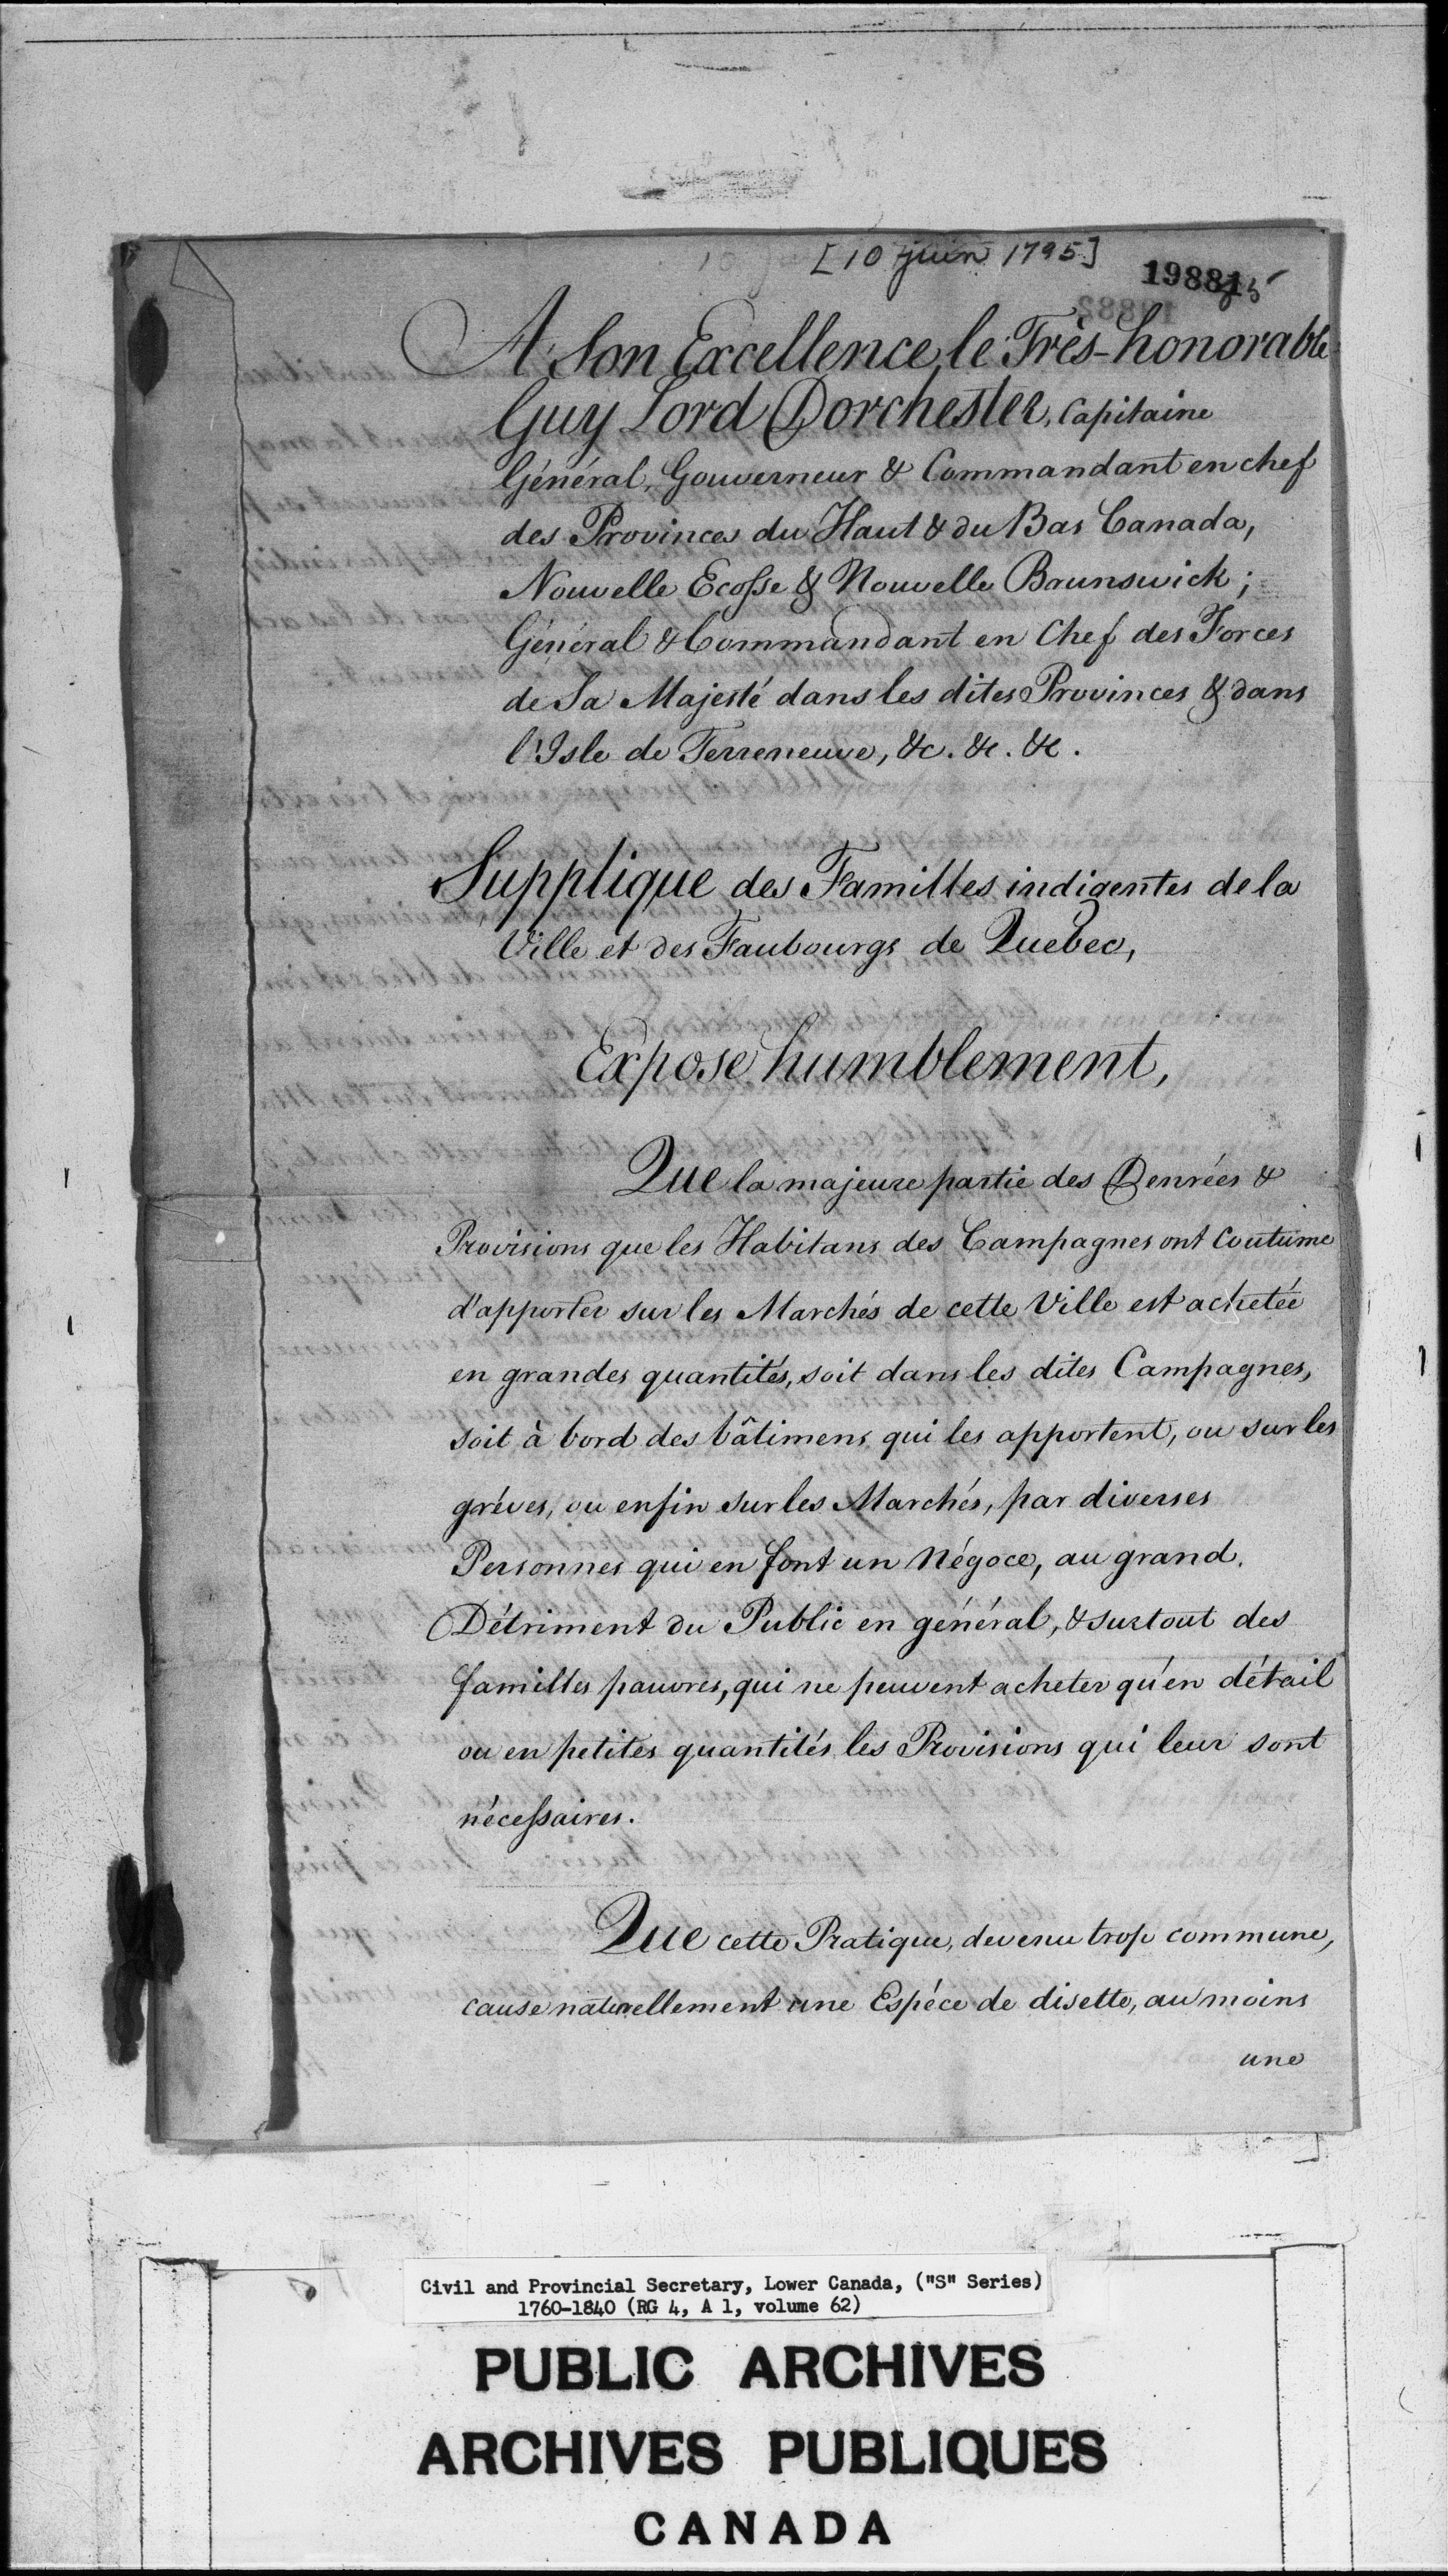 [10 juin 1795]
19881
A Son Excellence le Très-honorable
Guy Lord Dorchester, Capitaine
Général, Gouverneur & Commandant en chef
des Provinces du Haut & du Bas Canada,
Nouvelle Ecosse & Nouvelle Brunswick;
Général & Commandant en Chef des Forces
de Sa Majesté dans les dites Provinces & dans
l'Isle de Terreneuve, &c. &c. &c.
Supplique des Familles indigentes de la
Ville et des Faubourgs de Quebec,
Expose humblement,
Que la majeure partie des Denrées &
Provisions que les Habitans des Campagnes ont Coutume
d'apporter sur les Marchés de cette Ville est achetée
en grandes quantités, soit dans les dites Campagnes,
soit à bord des bâtimens qui les apportent, ou sur les
gréves, ou enfin sur les Marchés, par diverses
Personnes qui en font un Négoce, au grand
Détriment du Public en général, & surtout des
familles pauvres, qui ne peuvent acheter qu'en détail
ou en petites quantités les Provisions qui leur sont
nécessaires.
Que cette Pratique, devenu trop commune,
cause naturellement une Espéce de disette, au moins
une
Civil and Provincial Secretary, Lower Canada, ("S" Series)
1760-1840 (RG 4, A 1, volume 62)
PUBLIC ARCHIVES
ARCHIVES PUBLIQUES
CANADA